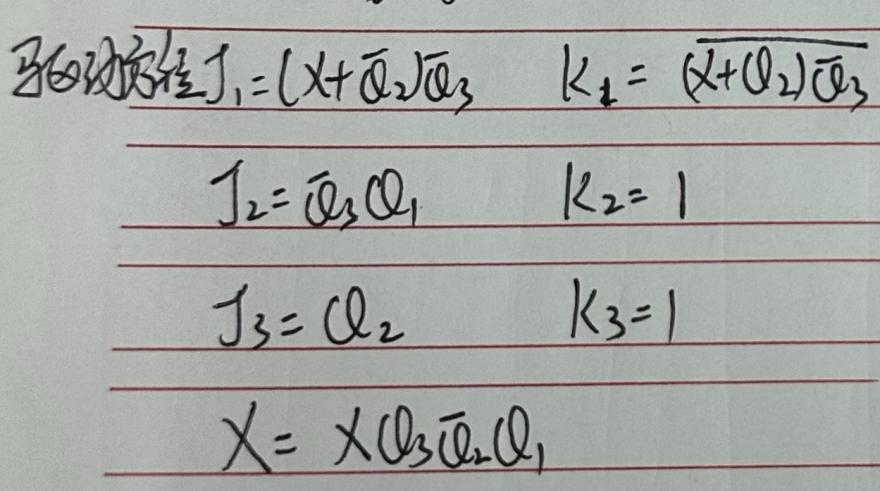 驱动方程 J₁=(X+Q̅₂)Q̅₃ K₁= \overline{(X+Q₂)Q̅₃}
J₂=Q̅₃Q₁ K₂=1
J₃=Q₂ K₃=1
X= XQ₃Q̅₂Q₁